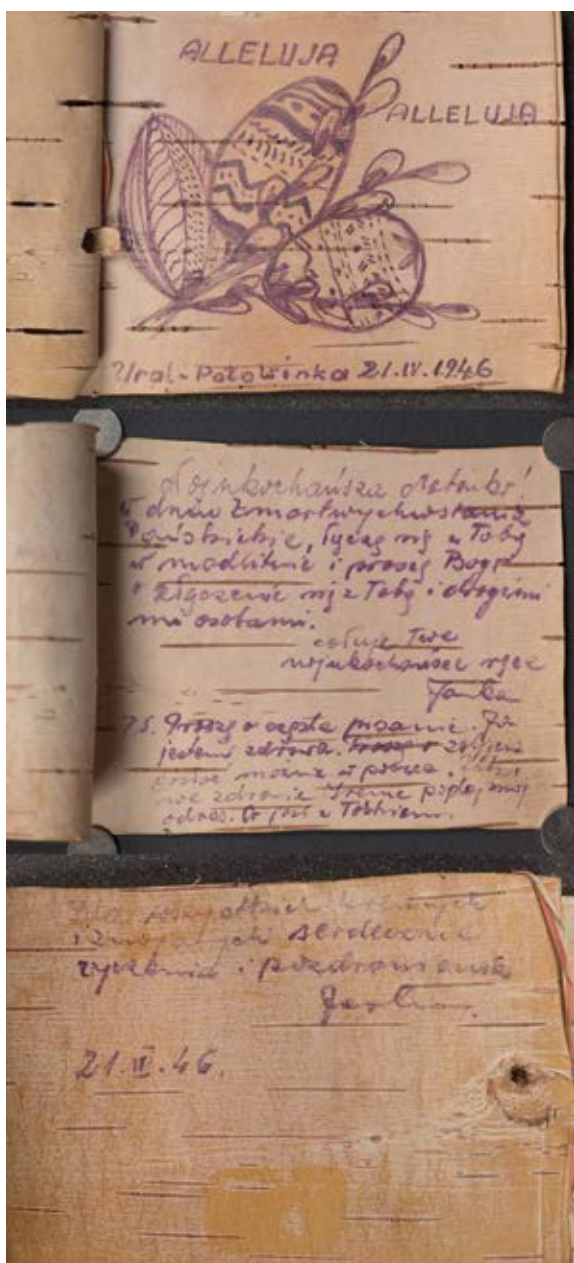 ALLELUJA
ALLELUJA
Ural-Połowinka 21.IV.1946
Najukochańsza Matenko!
W dniu Zmartwychwstania
Pańskiego, łączę się z Tobą
w modlitwie i proszę Boga
o złączenie się z Tobą i drogimi
mi osobami.
całuję Twe
najukochańsze ręce
Janka
PS. Proszę o częste pisanie. Ja
jestem zdrowa. Proszę o
można w
zdrowie Irenie
adres. Co jest z Tatkiem.
Dla wszystkich
i znajomych serdeczne
życzenia i
Janka.
21.III.46.